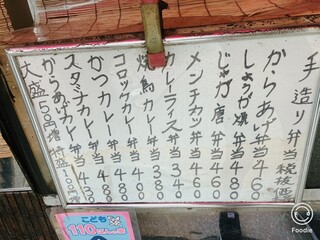 手造り弁当 税抜価
からあげ弁当 460
しょうが焼弁当 480
じゃが唐弁当 460
メンチカツ弁当 460
カレーライス弁当 340
焼鳥カレー弁当 380
コロッケカレー弁当 400
かつカレー弁当 480
スタミナカレー弁当 430
からあげカレー弁当 480
大盛50円増 特盛100円
こども
110
Foodie